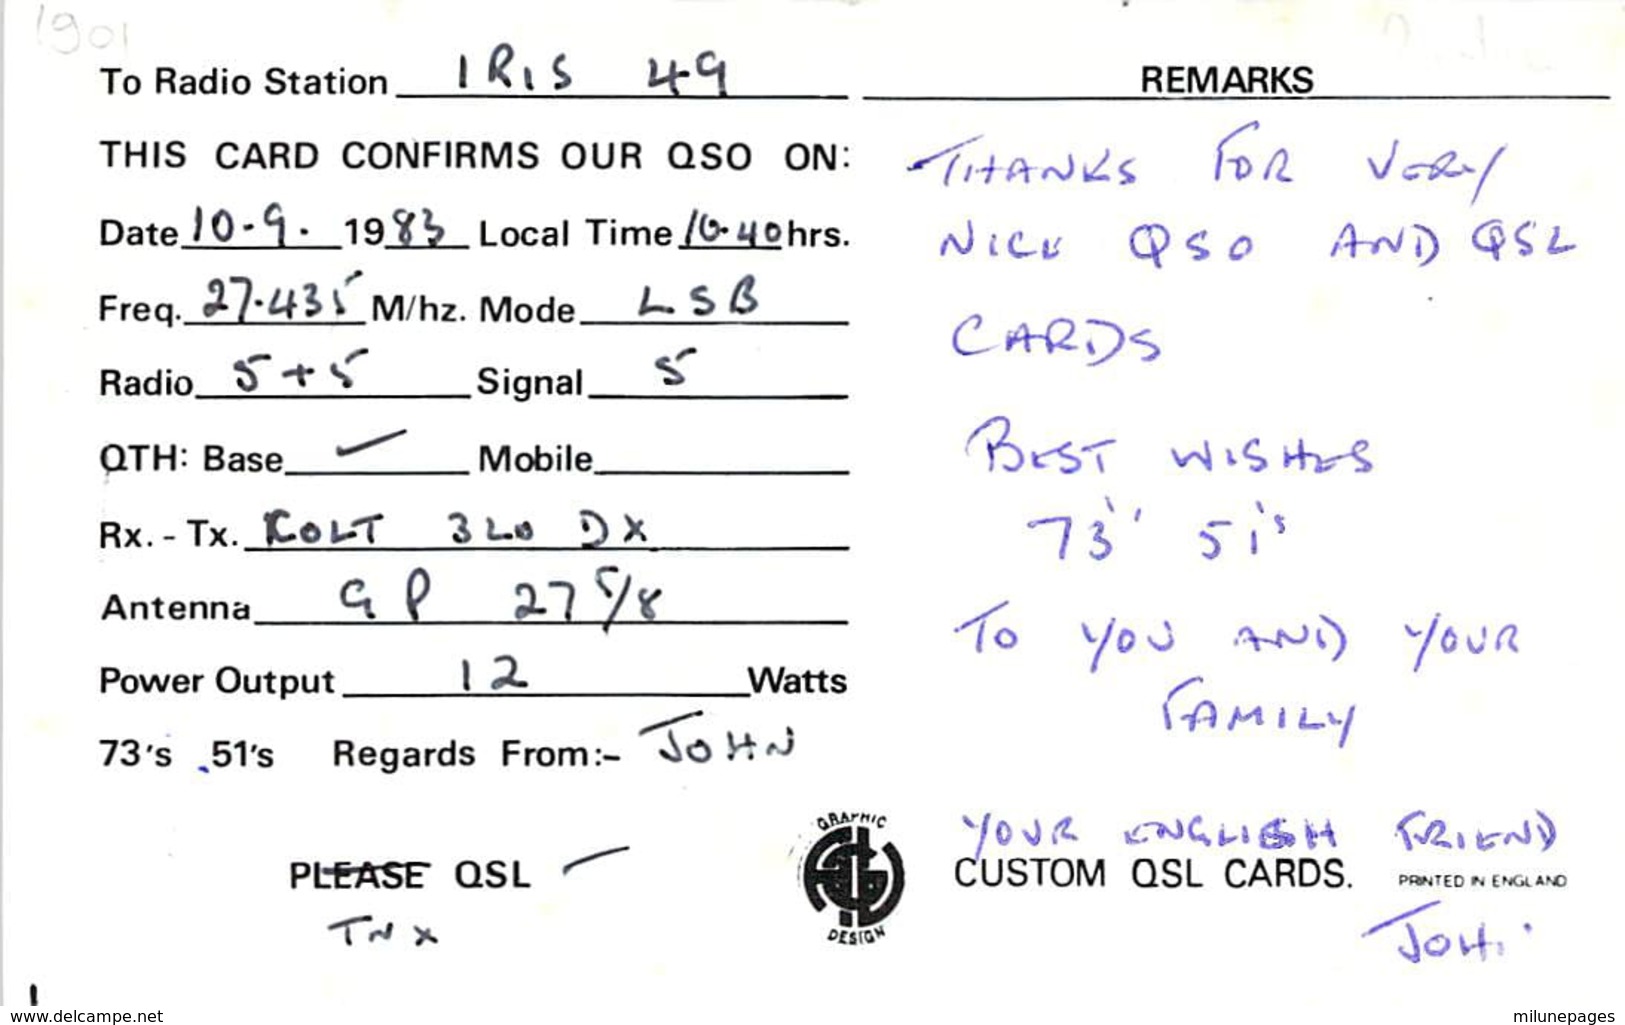 1901
To Radio Station IRIS 49
THIS CARD CONFIRMS OUR QSO ON:
Date 10-9. 1983 Local Time 10.40 hrs.
Freq. 27.435 M/hz. Mode LSB
Radio 5+5 Signal 5
QTH: Base ✓ Mobile
Rx. - Tx. COLT 320 DX
Antenna GP 27 5/8
Power Output 12 Watts
73's 51's Regards From:- JOHN
PLEASE QSL
TNX
REMARKS
THANKS FOR VERY
NICE QSO AND QSL
CARDS
BEST WISHES
73' 51's
TO YOU AND YOUR
FAMILY
YOUR ENGLISH FRIEND
GRAPHIC
DESIGN
CUSTOM QSL CARDS. PRINTED IN ENGLAND
JOH
www.delcampe.net
milunepages